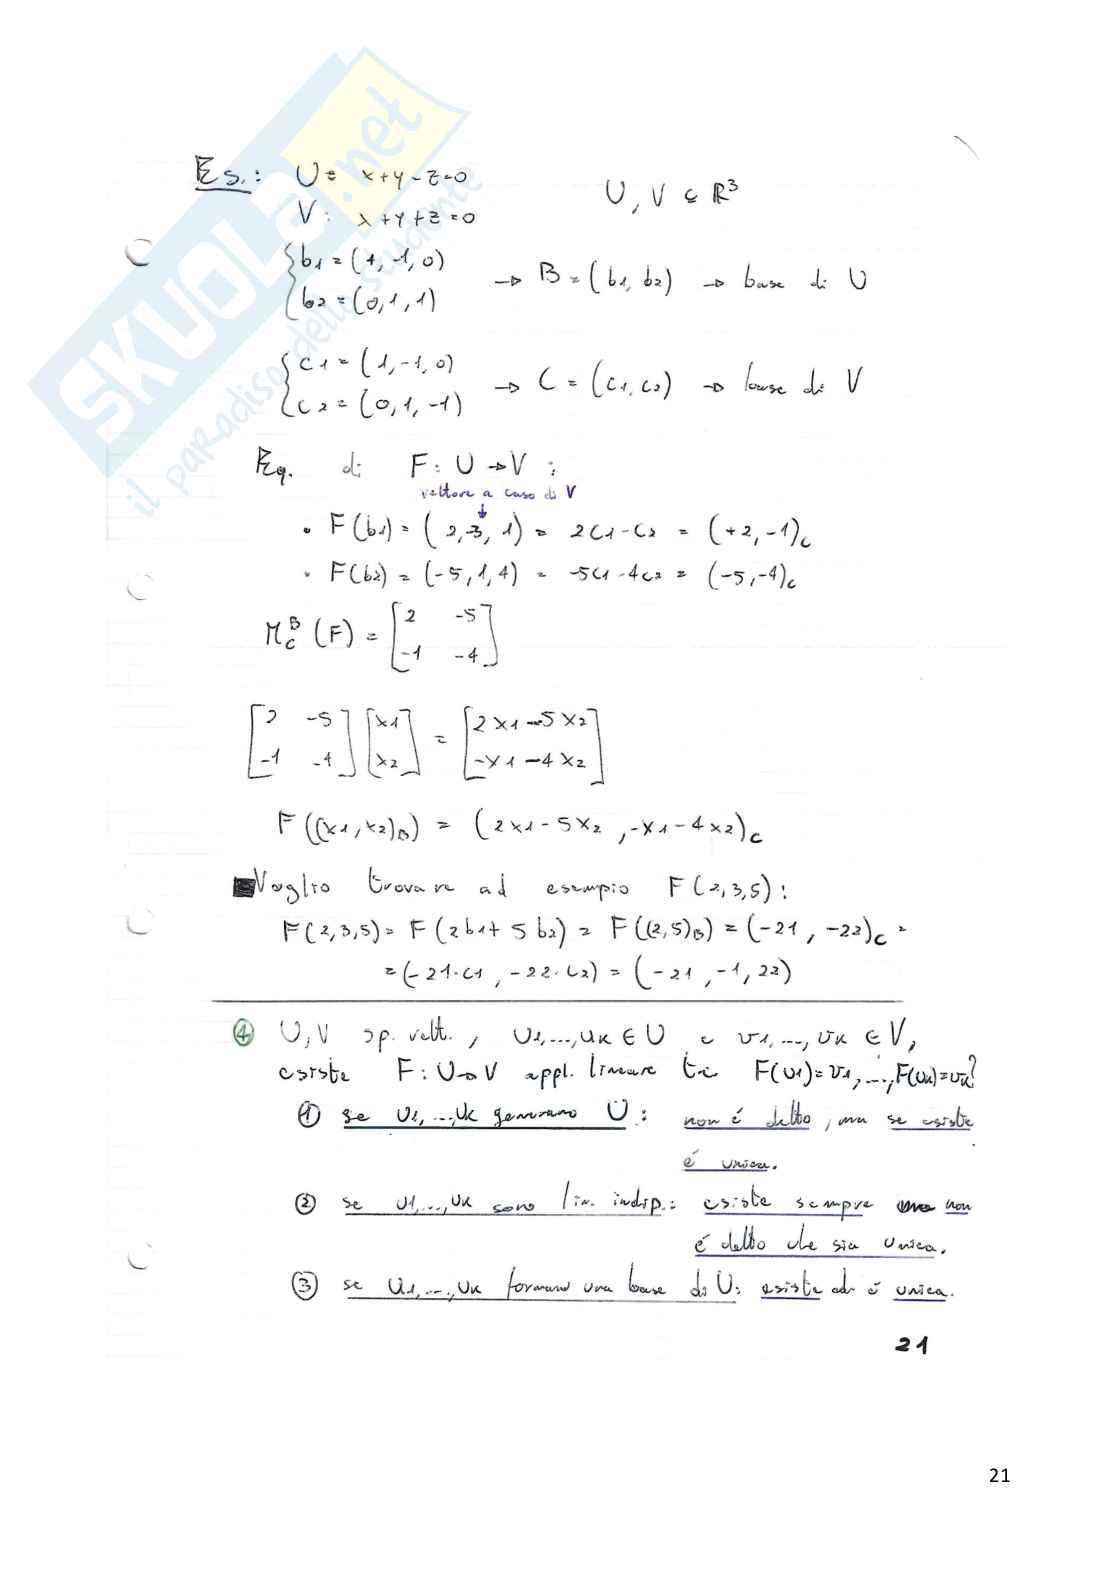 SKUOLA.net
il paradiso dello studente
Es.: U = x+y-z=0 U, V ⊆ ℝ³
V: x+y+z=0
{ b1 = (1, -1, 0)
b2 = (0, 1, 1) → B = (b1, b2) → base di U
{ c1 = (1, -1, 0)
c2 = (0, 1, -1) → C = (c1, c2) → base di V
Eq. di F: U → V :
vettore a caso di V
↓
• F(b1) = (2, -3, 1) = 2c1 - c2 = (+2, -1)C
• F(b2) = (-5, 1, 4) = -5c1 - 4c2 = (-5, -4)C
M_C^B (F) = [2 -5
-1 -4]
[2 -5 [x1 = [2x1 - 5x2
-1 -4] x2] -x1 - 4x2]
F((x1, x2)B) = (2x1 - 5x2, -x1 - 4x2)C
Voglio trovare ad esempio F(2,3,5):
F(2,3,5) = F(2b1 + 5b2) = F((2,5)B) = (-21, -22)C =
= (-21·c1, -22·c2) = (-21, -1, 22)
④ U, V sp. vett., u1,...,uk ∈ U e v1,...,vk ∈ V,
esiste F: U → V appl. lineare t.c. F(u1)=v1,...,F(uk)=vk?
① se u1,...,uk generano U: non è detto, ma se esiste
è unica.
② se u1,...,uk sono lin. indip.: esiste sempre ma non
è detto che sia unica.
③ se u1,...,uk formano una base di U: esiste ed è unica.
21
21